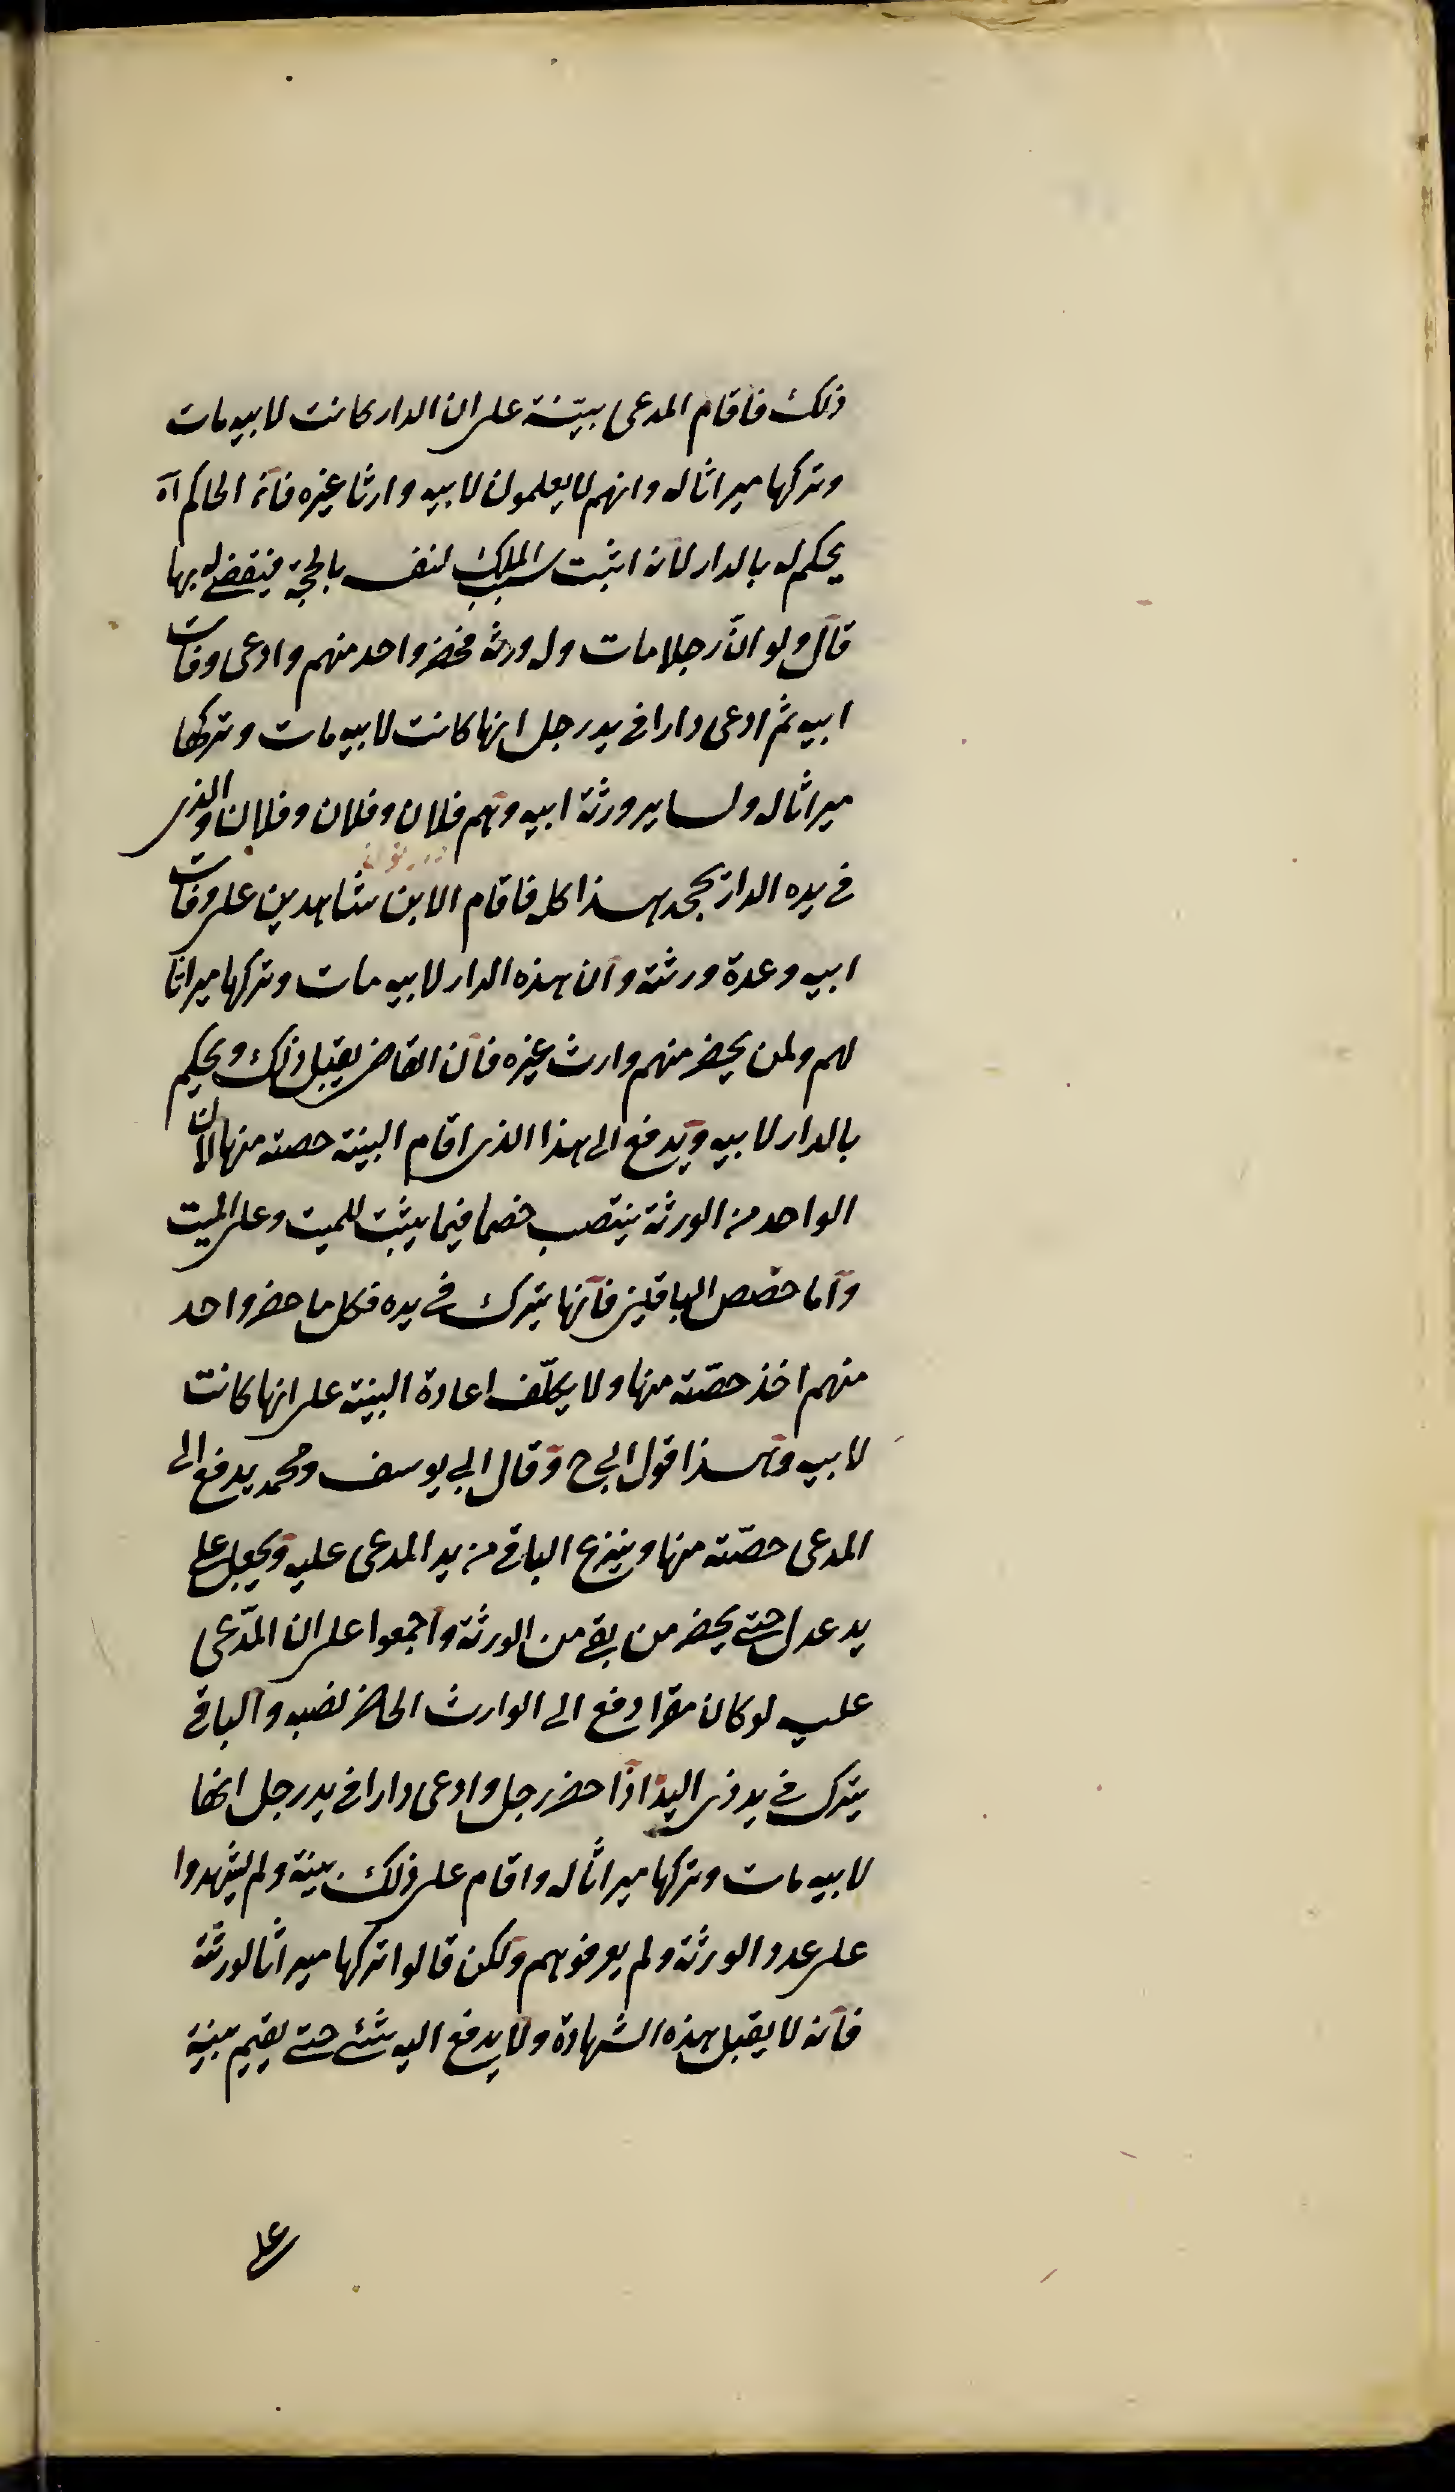 ذلك فاقام المدعى بيّنة على ان الدار كانت لابيه مات
وتركها ميراثا له وانهم لا يعلمون لابيه وارثا غيره فان الحاكم
يحكم له بالدار لانه اثبت سبب الملك لنفسه بالحجة فيقضى له بها
قال ولو انّ رجلا مات وله ورثة فحضر واحد منهم وادعى وفات
ابيه ثم ادعى دارا فى يد رجل انها كانت لابيه مات وتركها
ميراثا له ولساير ورثة ابيه وهم فلان وفلان وفلان والذى
فى يده الدار يجحد هذا كله فاقام الابن شاهدين على وفات
ابيه وعدة ورثته وان هذه الدار لابيه مات وتركها ميراثا
لهم ولمن يحضر منهم وارث غيره فان القاضى يقبل ذلك ويحكم
بالدار لابيه ويدفع الى هذا الذى اقام البينة حصته منها لان
الواحد من الورثة ينتصب خصما فيما يثبت للميت وعلى الميت
واما حصص الباقين فانها يترك فى يده فكل ما حضر واحد
منهم اخذ حصّته منها ولا يكلّف اعادة البينة على انها كانت
لابيه وهذا قول ابى ح وقال ابى يوسف ومحمد يدفع الى
المدعى حصّته منها وينزع الباقى من يد المدعى عليه ويجعل على
يد عدل حتى يحضر من بقى من الورثة واجمعوا على ان المدّعى
عليه لو كان مقرا دفع الى الوارث الحاضر نصيبه والباقى
يترك فى يد ذى اليد اذا حضر رجل وادعى دارا فى يد رجل انها
لابيه مات وتركها ميراثا له واقام على ذلك بينة ولم يشهدوا
على عدد الورثة ولم يعرفوهم ولكن قالوا تركها ميراثا لورثته
فانه لا يقبل هذه الشهادة ولا يدفع اليه شئ حتى يقيم بينة
على